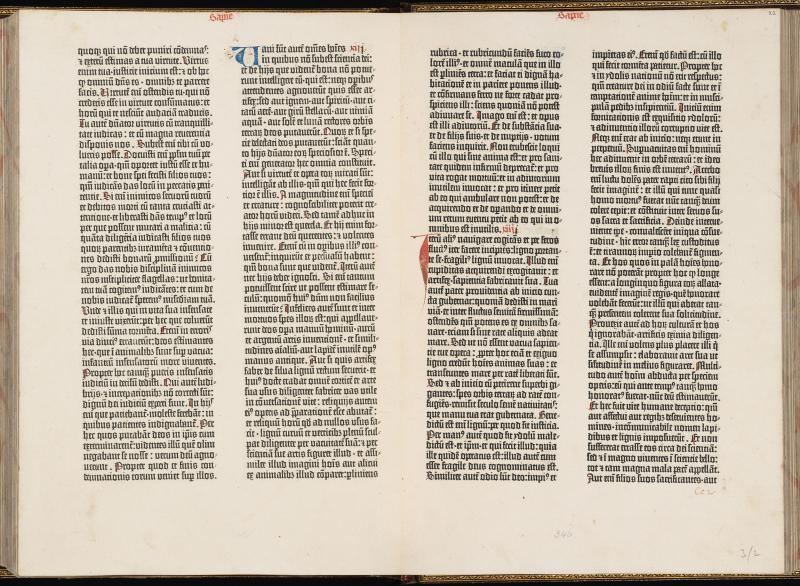 Sapie
quoqȝ qui nō debet puniri cōdemnaˢ:
⁊ exterū estimas a tua virtute. Virtus
enim tua iusticie inicium est: ⁊ ob hoc
ꝙ omniū dn̄s es · omnibꝫ te parcere
facis. Virtutē em̄ ostendis tu · qui nō
crederis esse in virtute consūmatus: et
horū qui te nesciūt audaciā traducis.
Tu autē dn̄ator virtutis cū tranquilli-
tate iudicas : et cū magna reuerentia
disponis nos . Subest em̄ tibi cū uo-
lueris posse. Docuisti em̄ pplm̄ tuū per
talia opa · qm̄ oportet iustū esse et hu-
manū: et bone spei fecisti filios tuos:
qm̄ iudicās das locū in peccatis peni-
tentie. Si em̄ inimicos seruorū tuorū
et debitos morti cū tanta cruciasti at-
tentione · et liberasti dās temp⁹ et locū
per que possent mutari a malicia: cū
quāta diligētia iudicasti filios tuos
quorꝫ parentibꝫ iuramēta ⁊ cōuentio-
nes dedisti bonarū pmissionū ? Cū
ergo das nobis disciplinā inimicos
nr̄os multipliciter flagellas: ut bonita-
tem tuā cogitem⁹ iudicātes: et cum de
nobis iudicat̄ speremꝰ miām tuā.
Unde et illis qui in vita sua insensate
et iniuste vixerūt: per hec que coluerūt
dedisti sūma tormēta. Etem̄ in erroris
via diuci⁹ errauerūt: deos estimantes
hec que i animalibꝫ sunt supuacua:
infantiū insensatorū more viuentes.
Propter hoc tamꝙ pueris insensatis
iudiciū in derisū dedisti. Qui autē ludi-
brijs ⁊ increpationibꝫ nō correcti sūt:
dignū dei iudiciū exp̄ti sunt. In hijs
em̄ que patiebant̄ moleste ferebāt: in
quibus patientes indignabant̄. Per
hec quos putabāt deos in ip̄sis cum
exterminarent̄: videntes illū quē olim
negabant se nosse : verum deū agno-
uerunt . Propter quod et finis con-
demnationis eorum veniet sup illos.
Vani sūt autē om̄es hoīes xiij
in quibus nō subest scientia dei:
et de hijs que vident̄ bona nō potue-
runt intelligere eū · qui est: neqꝫ opibꝰ
attendentes agnouerūt quis esset ar-
tifex: sed aut ignem · aut spiritū · aut ci-
tatū aerē · aut girū stellarū · aut nimiā
aquā · aut solē et lunā rectores orbis
terrarꝫ deos putauerūt. Quorꝫ et si spe-
cie delectati deos putauerūt: sciāt quan-
to hijs dn̄ator eorꝫ speciosior ē. Speci-
ei em̄ generator hec omnia constituit.
Aut si virtutē et opera eorꝫ mirati sūt:
intelligāt ab illis · qm̄ qui hec fecit for-
cior ē illis. A magnitudine em̄ speciei
et creature : cognoscibiliter poterit cre-
ator horū videri. Sed tamē adhuc in
hijs minor est querela. Et hij enim for-
tasse errant deū querentes: ⁊ volentes
inuenire. Etem̄ cū in opibus illiꝰ con-
uersent̄ inquirūt: et persuasū habent :
qm̄ bona sunt que vident̄. Iterū autē
nec hijs debet ignosci. Si em̄ tantum
potuerunt scire ut possent estimare se-
culū: quomō huiꝰ dn̄m non facilius
inuenerūt ? Infelices autē sunt et inter
mortuos spes illorꝫ est: qui appellaue-
runt deos opa manuū hominū · aurū
et argentū artis inuentionē · et simili-
tudines aīaliū · aut lapidē inutilē op⁹
manus antique. Aut si quis artifex
faber de silua lignū rectum secuerit · et
huiꝰ docte eradat omnē corticē et arte
sua usus diligenter fabricet vas utile
in cōuersationē vite: reliquijs autem
eiꝰ operis ad p̄parationē esce abutat̄:
et reliquū horū qd̄ ad nullos usus fa-
cit · lignū curuū et vorticibꝫ plenū scul-
pat diligenter per vacuitatē suā: ⁊ per
scientiā sue artis figuret illud · et assi-
milet illud imagini hoīs aut alicui
ex animalibꝫ illud cōparet: pliniens
Sapie
rubrica · et rubicundū faciēs fuco co-
lorē illiꝰ · et omnē maculā que in illo
est pliniēs terra: et faciat ei dignā ha-
bitacionē · et in pariete ponens illud ·
et cōfirmans ferro ne forte cadat pro-
spiciens illi : sciens quoniā nō potest
adiuuare se. Imago em̄ est: et opus
est illi adiutoriū. Et de substātia sua ·
et de filijs suis · et de nuptijs · votum
faciens inquirit. Non erubescit loqui
cū illo qui sine anima est: et pro sani-
tate quidem infirmū deprecat̄: et pro
vita rogat mortuū: et in adiutorium
inutilem inuocat : et pro itinere petit
ab eo qui ambulare non potest: et de
acquirendo et de operando et de omni-
um rerum euentu petit ab eo qui in o-
mnibus est inutilis. xiiij
Iterū aliꝰ nauigare cogitās et per feros
fluctꝰ iter facere incipiēs: ligno portan-
te se fragiliꝰ lignū inuocat. Illud em̄
cupiditas acquirendi excogitauit : et
artifex sapientia fabricauit sua. Tua
autē pater prouidentia ab inicio cun-
cta gubernat: quoniā dedisti in mari
viā · et inter fluctus semitā firmissimā:
ostendēs qm̄ potens es ex omnibꝫ sa-
luare · etiam si sine rate aliquis adeat
mare. Sed ut nō essent vacua sapien-
tie tue opera : p̄pter hoc etiā ⁊ exiguo
ligno credūt hoīes animas suas : et
transeuntes mare per ratē liberati sūt.
Sed ⁊ ab inicio cū perirent superbi gi-
gantes: spes orbis terrarꝫ ad ratē con-
fugiēs · remisit seculo semē natiuitatꝭ:
que manu tua erat gubernata. Bene-
dictū est em̄ lignū: per quod fit iusticia.
Per manꝰ autē quod fit ydolū male-
dictū est · et ip̄m · et qui fecit illud: quia
ille quidē operatus est: illud autē cum
esset fragile deus cognominatus est.
Similiter autē odio sūt deo: impiꝰ et
impietas eiꝰ. Etem̄ qd̄ factū est: cū illo
qui fecit tormēta patietur. Propter hoc
⁊ in ydolis nationū nō erit respectus:
qm̄ creature dei in odiū facte sunt et ī
temptacionē animis hoīm: et in musci-
pulā pedibꝫ insipientiū. Iniciū enim
fornicationis est exquisitio ydolorū:
⁊ adinuentio illorū corruptio vite est.
Neqꝫ em̄ erāt ab inicio: neqꝫ erunt in
perpetuū. Superuacuitas em̄ hominū
hec aduenit in orbē terrarū: et ideo
breuis illorꝫ finis est inuentꝰ. Acerbo
em̄ luctu dolēs pater rapti cito sibi filij
fecit imaginē : et illū qui tunc quasi
homo mortuꝰ fuerat nūc tamꝙ deum
colere cepit: et cōstituit inter seruos su-
os sacra et sacrificia. Deinde interue-
niente tpe · conualescente iniqua cōsue-
tudine · hic error tamꝙ lex custoditus
ē: et tirannorꝫ imperio colebāt̄ figmen-
ta. Et hos quos in palā hoīes hono-
rare nō poterāt propter hoc ꝙ longe
essent: e longinquo figura eorꝫ allata ·
euidentē imaginē regis quē honorare
volebāt fecerūt: ut illū qui aberat tam-
ꝙ presentem colerent sua solicitudine.
Prouexit autē ad horꝫ culturā et hos
qͥ ignorabāt · artificis eximia diligen-
tia. Ille em̄ volens plus placere illi q̇
se assumpsit : elaborauit arte sua ut
similitudinē in meliꝰ figuraret. Multi-
tudo autē hoīm abducta per speciem
operis: eū qui ante tempꝰ tamꝙ homo
honoratꝰ fuerat · nūc deū estimauerūt.
Et hec fuit vite humane deceptio: qm̄
aut affectui aut regibꝫ deseruientes ho-
mines · incōmunicabile nomen lapi-
dibus et lignis imposuerūt. Et non
suffecerat errasse eos circa dei scientiā:
sed ⁊ ī magno viuentes ī scientie bello:
tot ⁊ tam magna mala pacē appellāt.
Aut em̄ filios suos sacrificantes · aut
346
3/2